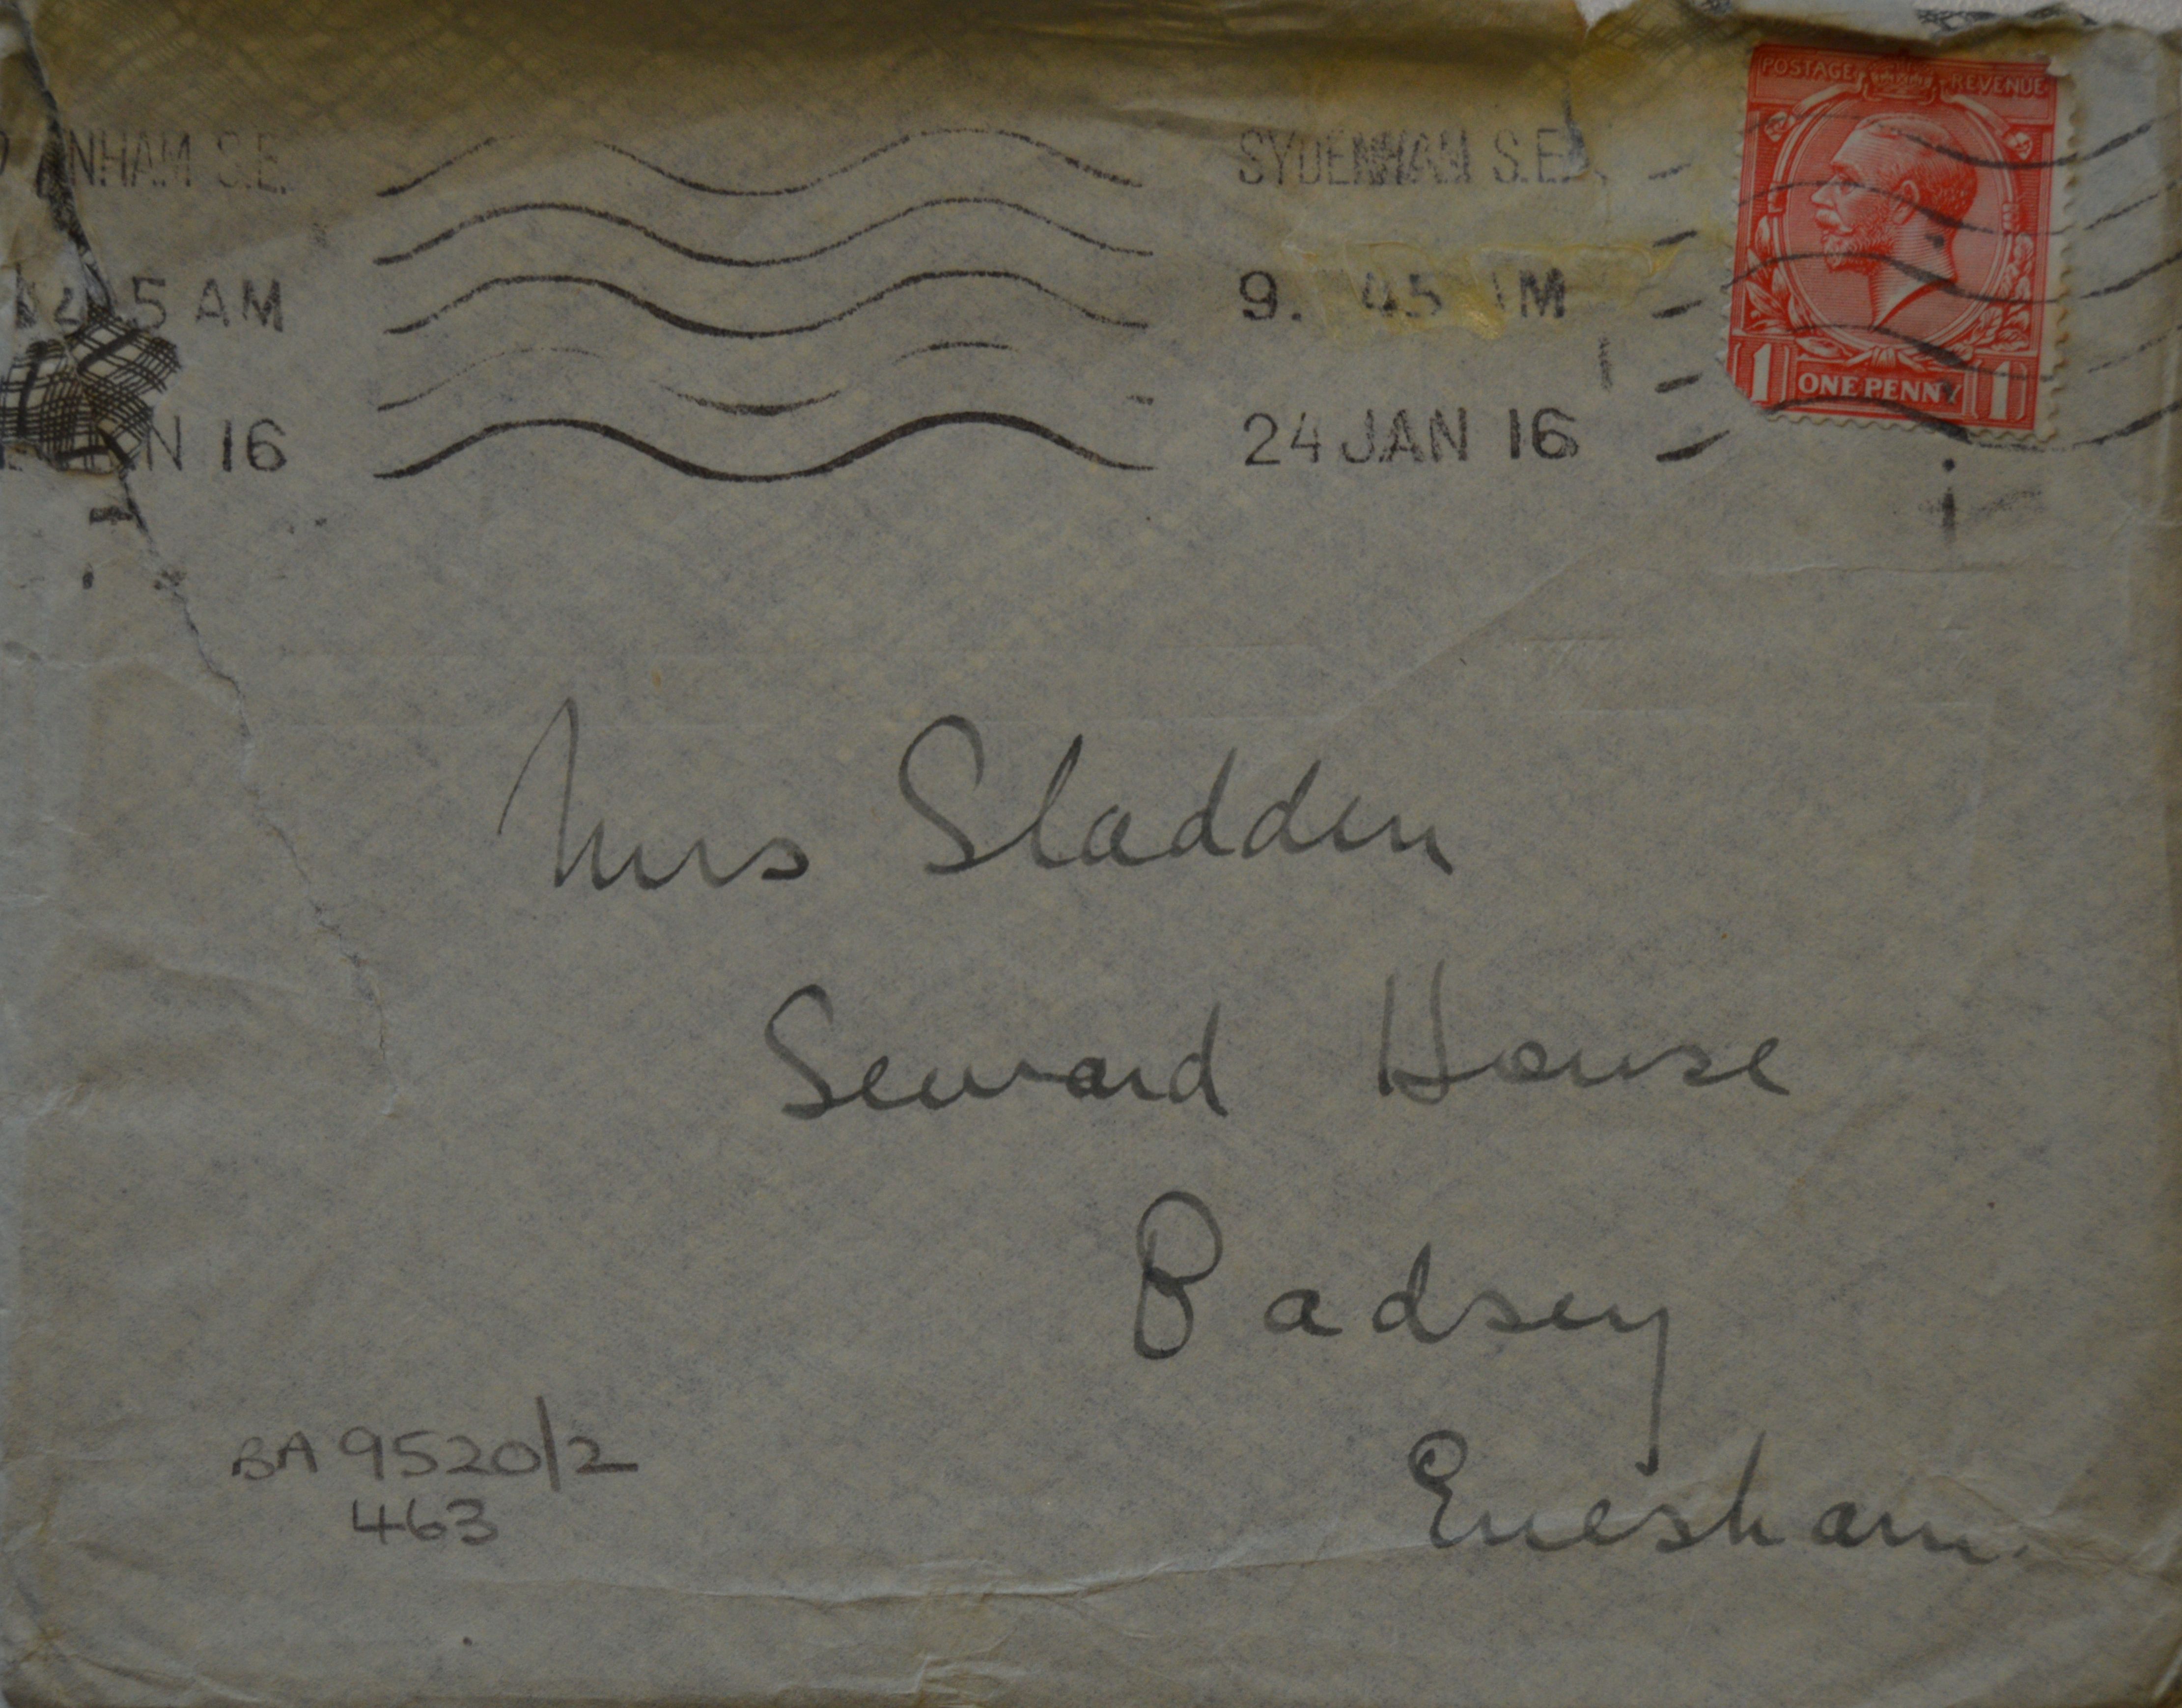 POSTAGE REVENUE
NHAM S.E. SYDENHAM S.E.
45 AM 9. 45 M
N 16 24 JAN 16
1 ONE PENNY 1
Mrs Sladden
Seward House
Badsey
Evesham.
BA 9520/2
463